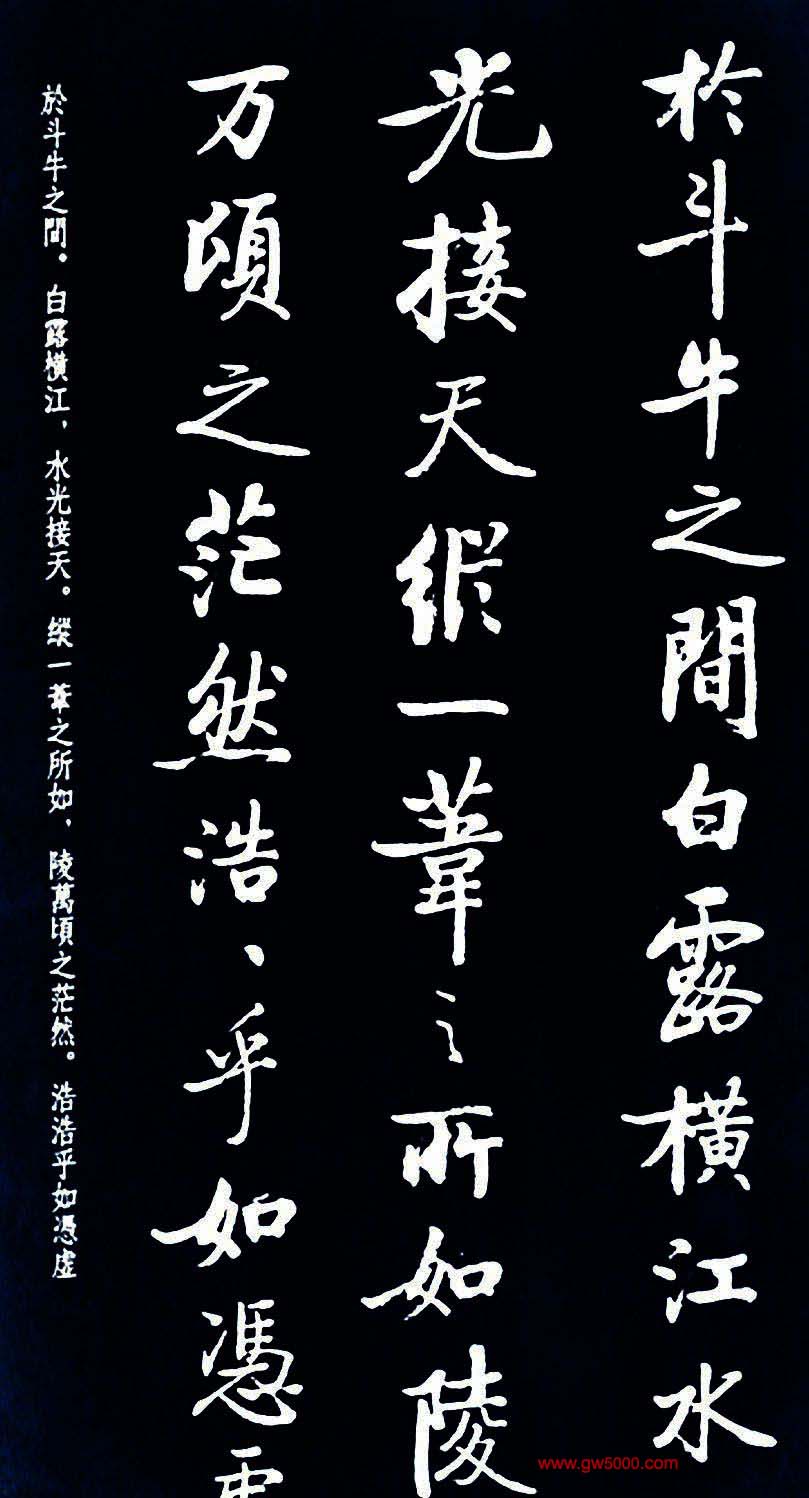 於斗牛之間白露橫江水
光接天縱一葦之所如陵
万頃之茫然浩、乎如憑虛
於斗牛之間。白露橫江，水光接天。縱一葦之所如，陵萬頃之茫然。浩浩乎如憑虛
www.gw5000.com